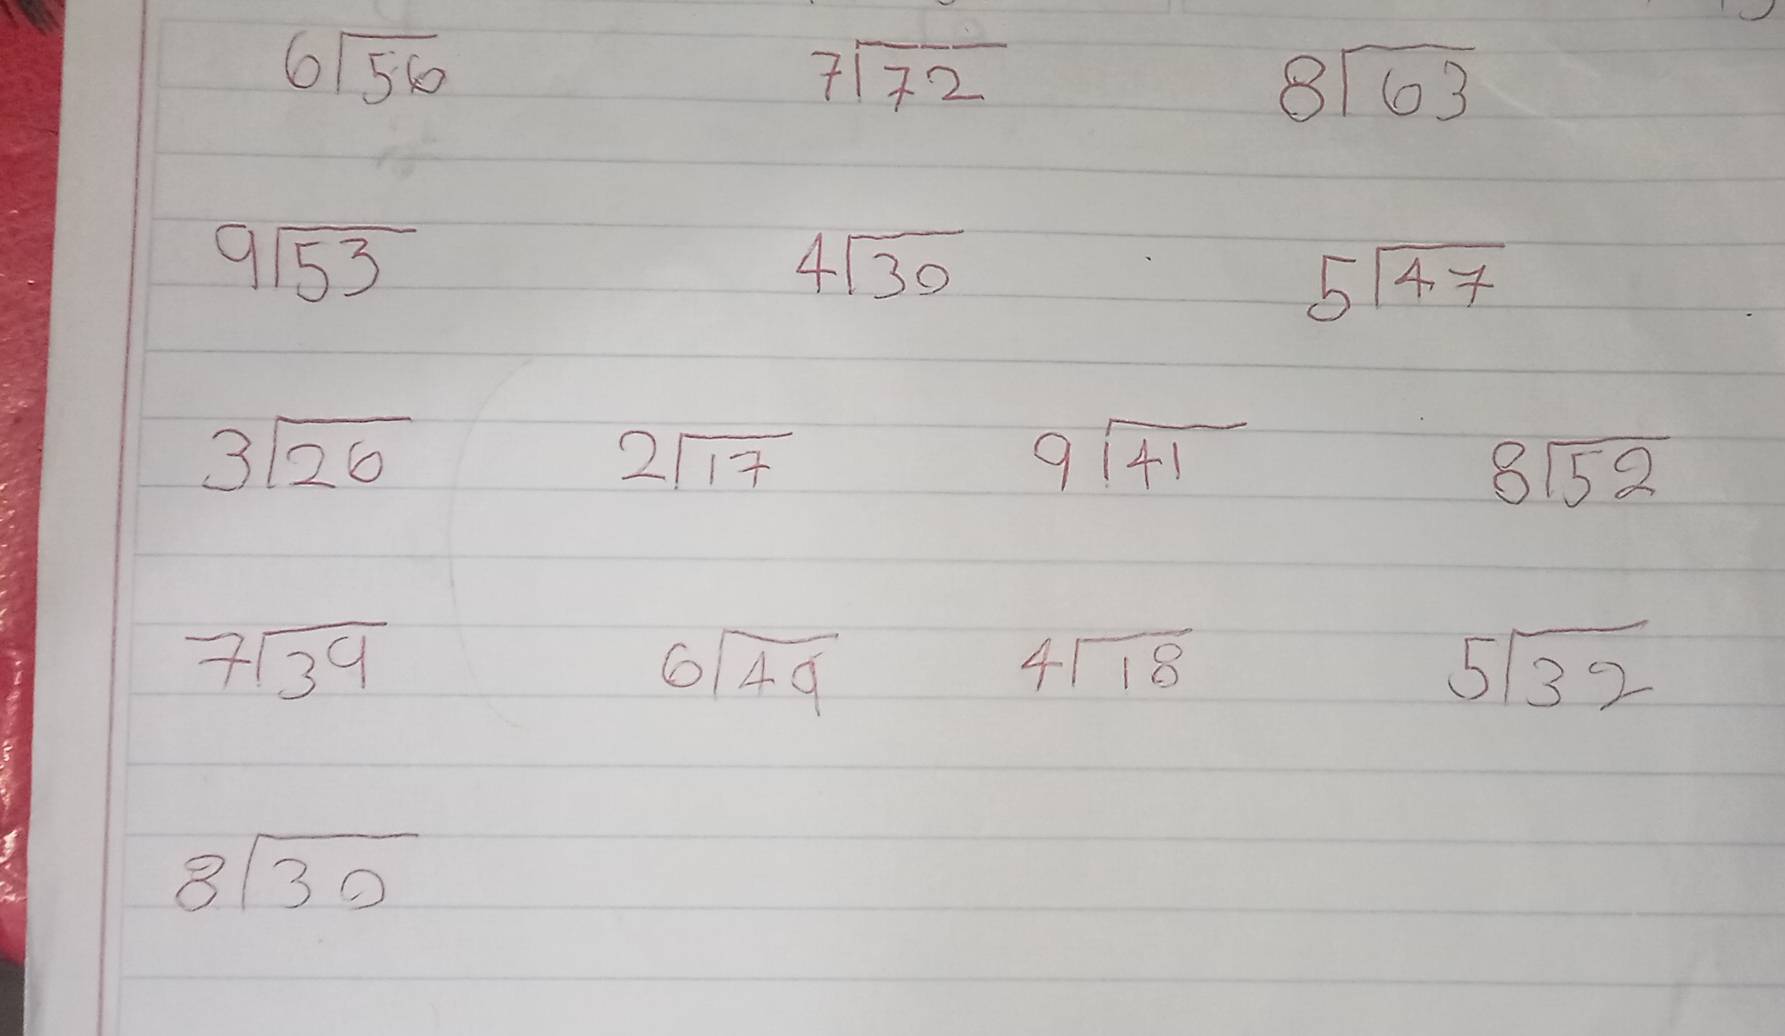 6⟌56 7⟌72 8⟌63
9⟌53 4⟌30 5⟌47
3⟌26 2⟌17 9⟌41 8⟌52
7⟌39 6⟌49 4⟌18 5⟌32
8⟌30